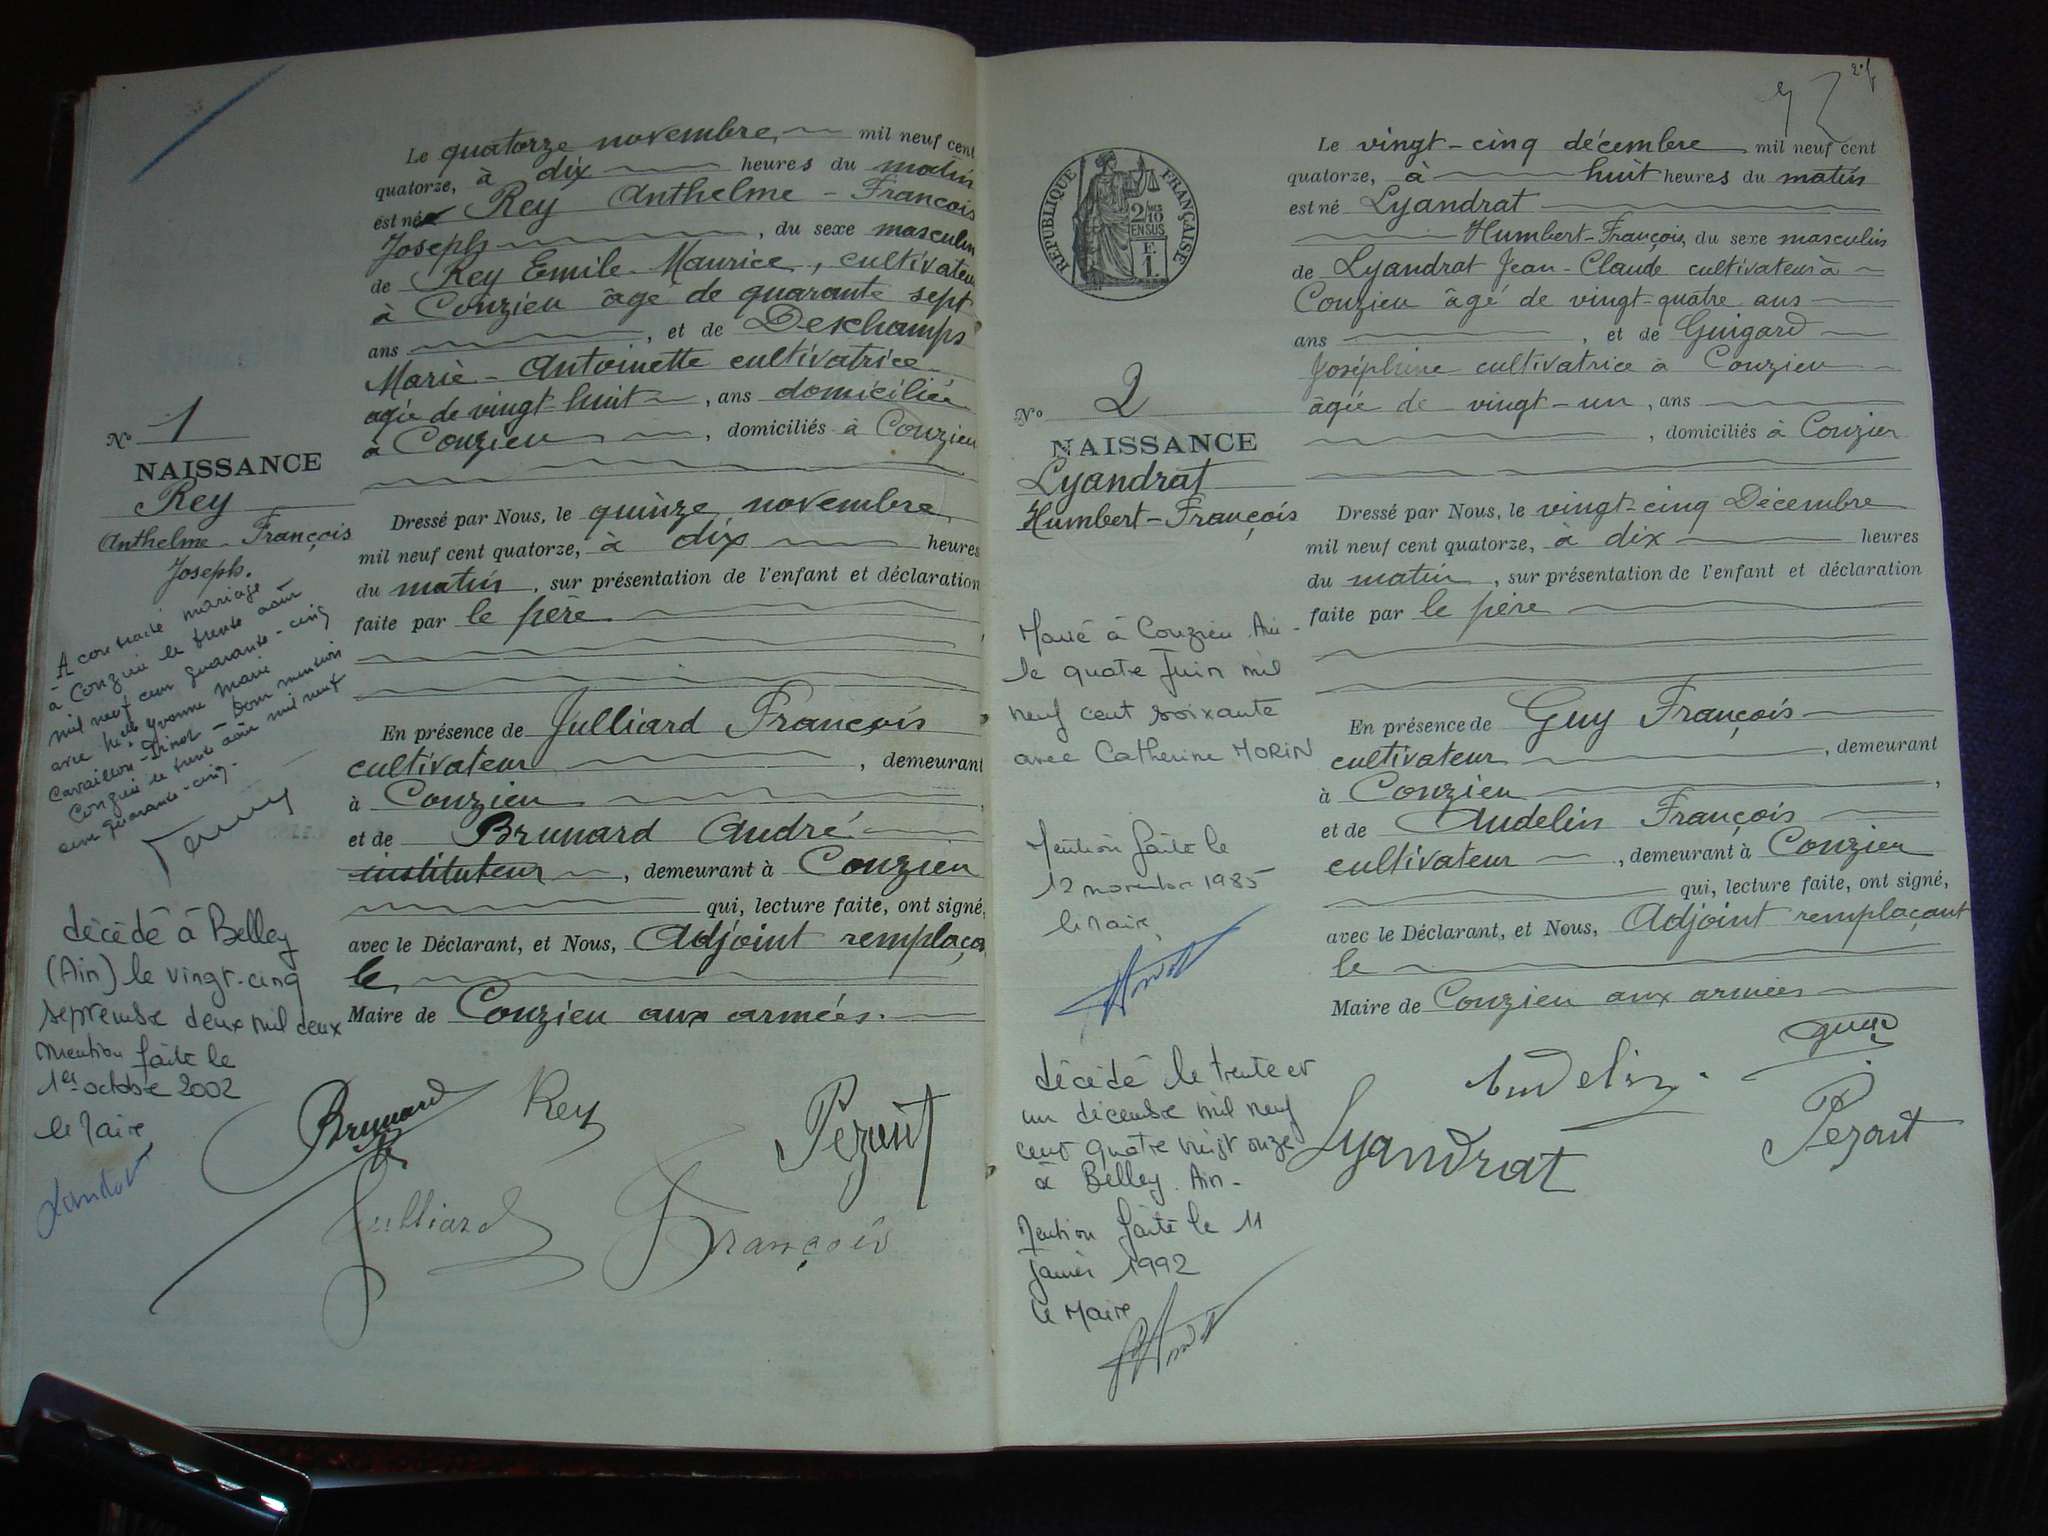 Le quatorze novembre, mil neuf cent
quatorze, à dix heures du matin
est né Rey Anthelme - François
Joseph, du sexe masculin
de Rey Emile Maurice, cultivateur
à Conzieu âgé de quarante sept
ans, et de Deschamps
Marie - Antoinette cultivatrice
agée de vingt-huit, ans domiciliée
à Conzieu, domiciliés à Conzieu
Nº 1
NAISSANCE
Rey
Anthelme - François
Joseph.
Dressé par Nous, le quinze novembre
mil neuf cent quatorze, à dix heures
du matin, sur présentation de l'enfant et déclaration
faite par le père
En présence de Julliard François
cultivateur, demeurant
à Conzieu
et de Brunard André
instituteur, demeurant à Conzieu
qui, lecture faite, ont signé,
avec le Déclarant, et Nous, Adjoint remplaça
le
Maire de Conzieu aux armées.
A contracté mariage
à Conzieu le trente août
mil neuf cent quarante-cinq
avec Melle Yvonne Marie
Cavaillon-Pinot - Dont mention
Conzieu le trente août mil neuf
cent quarante-cinq.
décédé à Belley
(Ain) le vingt-cinq
septembre deux mil deux
Mention faite le
1er octobre 2002
le Maire
Brunard Rey Pezant
Julliard François
2
RÉPUBLIQUE FRANÇAISE
2/10
EN SUS
F.
1.
Le vingt-cinq décembre mil neuf cent
quatorze, à huit heures du matin
est né Lyandrat
Humbert-François, du sexe masculin
de Lyandrat Jean-Claude cultivateur à
Conzieu âgé de vingt-quatre ans
ans, et de Guigard
Joséphine cultivatrice à Conzieu
âgée de vingt-un, ans
, domiciliés à Conzieu
Nº 2
NAISSANCE
Lyandrat
Humbert-François
Dressé par Nous, le vingt-cinq Décembre
mil neuf cent quatorze, à dix heures
du matin, sur présentation de l'enfant et déclaration
faite par le père
En présence de Guy François
cultivateur, demeurant
à Conzieu,
et de Audelin François
cultivateur, demeurant à Conzieu
qui, lecture faite, ont signé,
avec le Déclarant, et Nous, Adjoint remplaçant
le
Maire de Conzieu aux armées
Marié à Conzieu Ain -
le quatre Juin mil
neuf cent soixante
avec Catherine MORIN
Mention faite le
12 novembre 1985
le Maire,
décédé le trente et
un décembre mil neuf
cent quatre vingt onze
à Belley Ain -
Mention faite le 11
janvier 1992
Le Maire
Guy
Audelin
Lyandrat Pezant